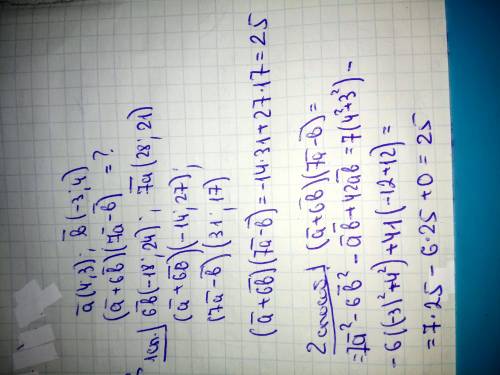 ā(4;3); b̄(-3;4)
(ā+6b̄)(7ā-b̄) = ?
1сп.) 6b̄(-18;24); 7ā(28;21)
(ā+6b̄)(-14;27);
(7ā-b̄)(31;17)
(ā+6b̄)(7ā-b̄)=-14·31+27·17=25
2 способ) (ā+6b̄)(7ā-b̄)=
=7ā²-6b̄²-āb̄+42āb̄=7(4²+3²)-
-6((-3)²+4²)+41(-12+12)=
=7·25-6·25+0=25